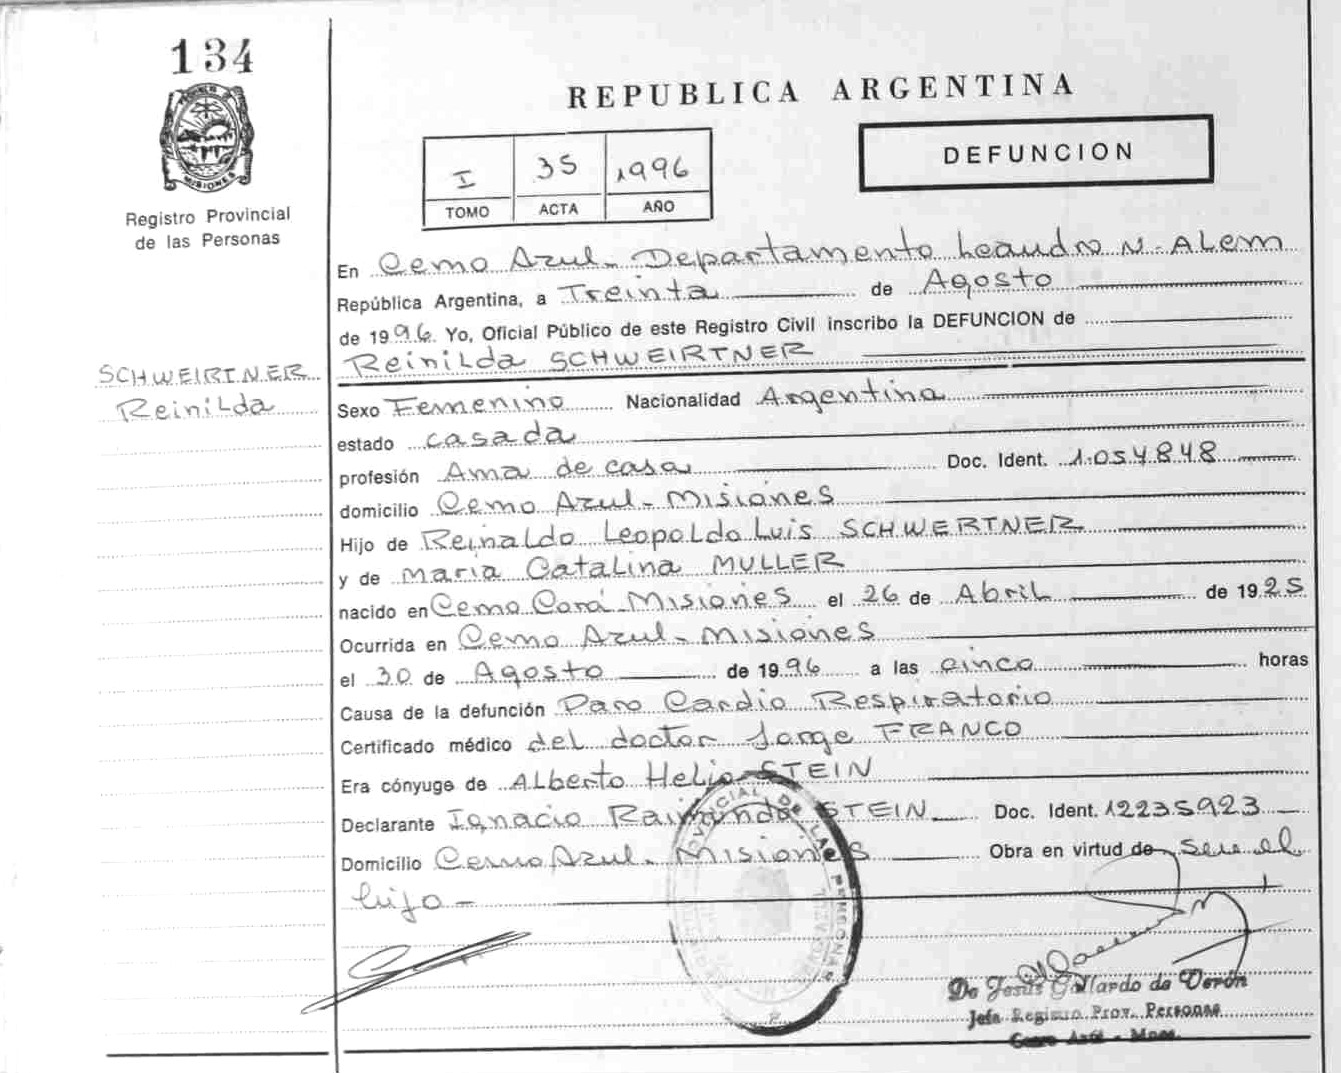 134
MISIONES
Registro Provincial
de las Personas
REPUBLICA ARGENTINA
I 35 1996
TOMO ACTA AÑO
DEFUNCION
SCHWEIRTNER
Reinilda
En Cerro Azul - Departamento Leandro N. ALem
República Argentina, a Treinta de Agosto
de 1996. Yo, Oficial Público de este Registro Civil inscribo la DEFUNCION de
Reinilda SCHWEIRTNER
Sexo Femenino Nacionalidad Argentina
estado casada
profesión Ama de casa Doc. Ident. 1.054848
domicilio Cerro Azul - Misiones
Hijo de Reinaldo Leopoldo Luis SCHWERTNER
y de Maria Catalina MULLER
nacido en Cerro Corá - Misiones el 26 de Abril de 1925
Ocurrida en Cerro Azul - Misiones
el 30 de Agosto de 1996 a las cinco horas
Causa de la defunción Paro Cardio Respiratorio
Certificado médico del doctor Jorge FRANCO
Era cónyuge de ALberto Helio STEIN
Declarante Ignacio Raimundo STEIN Doc. Ident. 12235923
Domicilio Cerro Azul - Misiones Obra en virtud de Ser el
hijo -
PROVINCIAL DE LAS PERSONAS
De Jesús Gallardo de Verón
Jefa Registro Prov. Personas
Cerro Azul - Mnes.